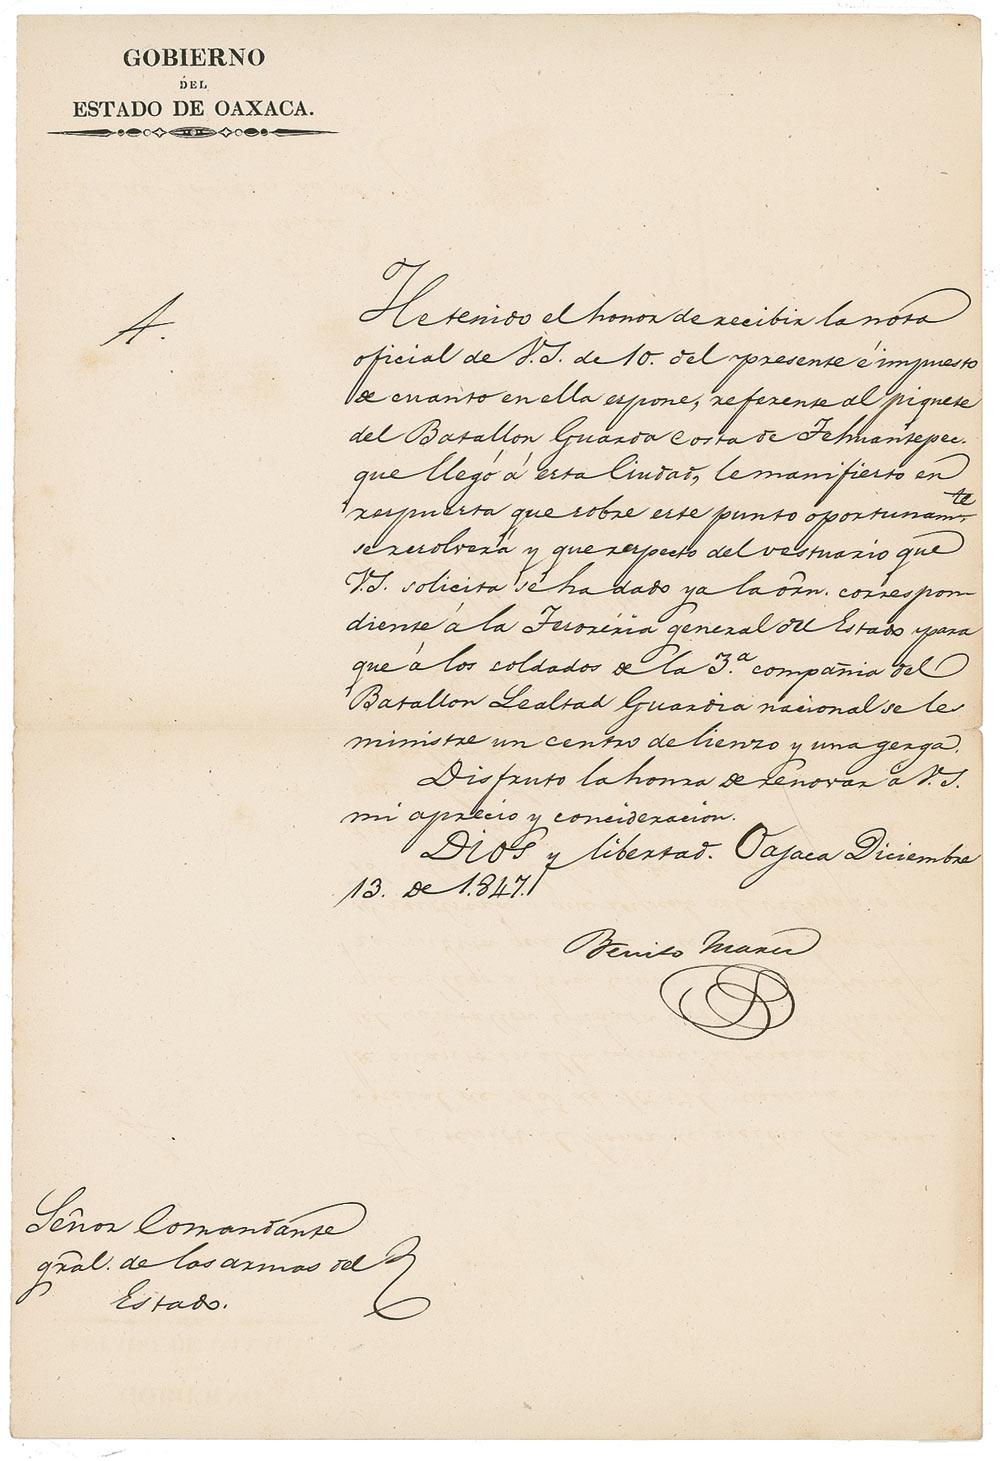 GOBIERNO
DEL
ESTADO DE OAXACA.
A.
He tenido el honor de recibir la nota
oficial de V.S. de 10. del presente é impuesto
de cuanto en ella espone, referente al piquete
del Batallon Guarda costa de Tehuantepec.
que llegó á esta Ciudad, le manifiesto en
respuesta que sobre este punto oportunamte.
se resolverá y que respecto del vestuario que
V.S. solicita se ha dado ya la órn. correspon
diente á la Tesoreria general del Estado para
que á los soldados de la 3.a compañia del
Batallon Lealtad Guardia nacional se le
ministre un centro de lienzo y una gerga.
Disfruto la honra de renovar á V.S.
mi aprecio y concideracion.
Dios y libertad. Oajaca Diciembre
13. de 1.847.
Benito Juarez
Señor Comandante
gral. de las armas del
Estado.